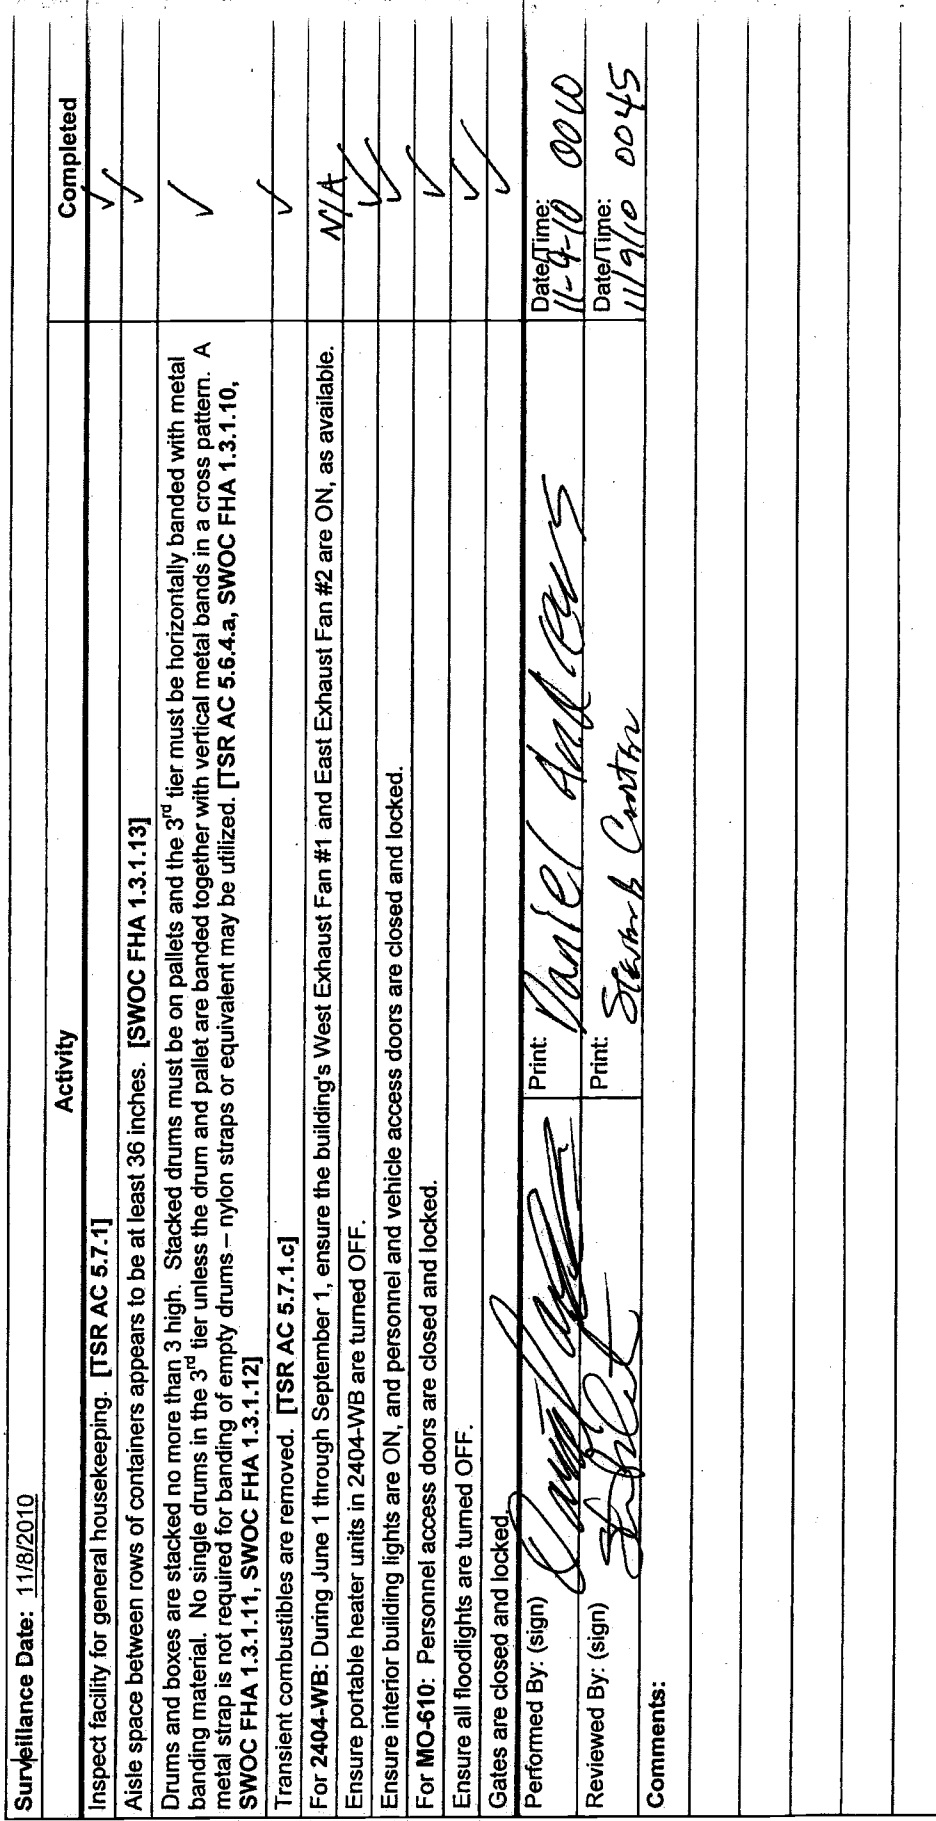 Surveillance Date: 11/8/2010
Activity Completed
Inspect facility for general housekeeping. [TSR AC 5.7.1] ✓
Aisle space between rows of containers appears to be at least 36 inches. [SWOC FHA 1.3.1.13] ✓
Drums and boxes are stacked no more than 3 high. Stacked drums must be on pallets and the 3rd tier must be horizontally banded with metal
banding material. No single drums in the 3rd tier unless the drum and pallet are banded together with vertical metal bands in a cross pattern. A
metal strap is not required for banding of empty drums – nylon straps or equivalent may be utilized. [TSR AC 5.6.4.a, SWOC FHA 1.3.1.10,
SWOC FHA 1.3.1.11, SWOC FHA 1.3.1.12] ✓
Transient combustibles are removed. [TSR AC 5.7.1.c] ✓
For 2404-WB: During June 1 through September 1, ensure the building's West Exhaust Fan #1 and East Exhaust Fan #2 are ON, as available. N/A
Ensure portable heater units in 2404-WB are turned OFF. ✓
Ensure interior building lights are ON, and personnel and vehicle access doors are closed and locked. ✓
For MO-610: Personnel access doors are closed and locked. ✓
Ensure all floodlights are turned OFF. ✓
Gates are closed and locked. ✓
Performed By: (sign) Print: Daniel Andrews Date/Time: 11-9-10 0010
Reviewed By: (sign) Print: Date/Time: 11/9/10 0045
Comments: